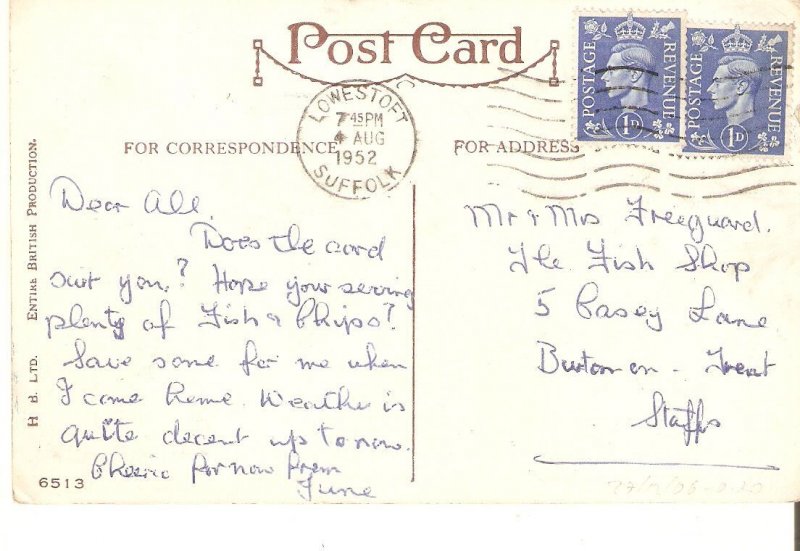 Post Card
LOWESTOFT
7 45 PM
4 AUG
1952
SUFFOLK
POSTAGE REVENUE
1D
POSTAGE REVENUE
1D
FOR CORRESPONDENCE
FOR ADDRESS
H B. LTD. ENTIRE BRITISH PRODUCTION.
Dear All.
Does the card
suit you? Hope your serving
plenty of Fish & Chips?
Save some for me when
I come home. Weather is
quite decent up to now.
Cheerio for now from
June
6513
Mr & Mrs Freeguard.
The Fish Shop
5 Casey Lane
Burton-on-Trent
Staffs